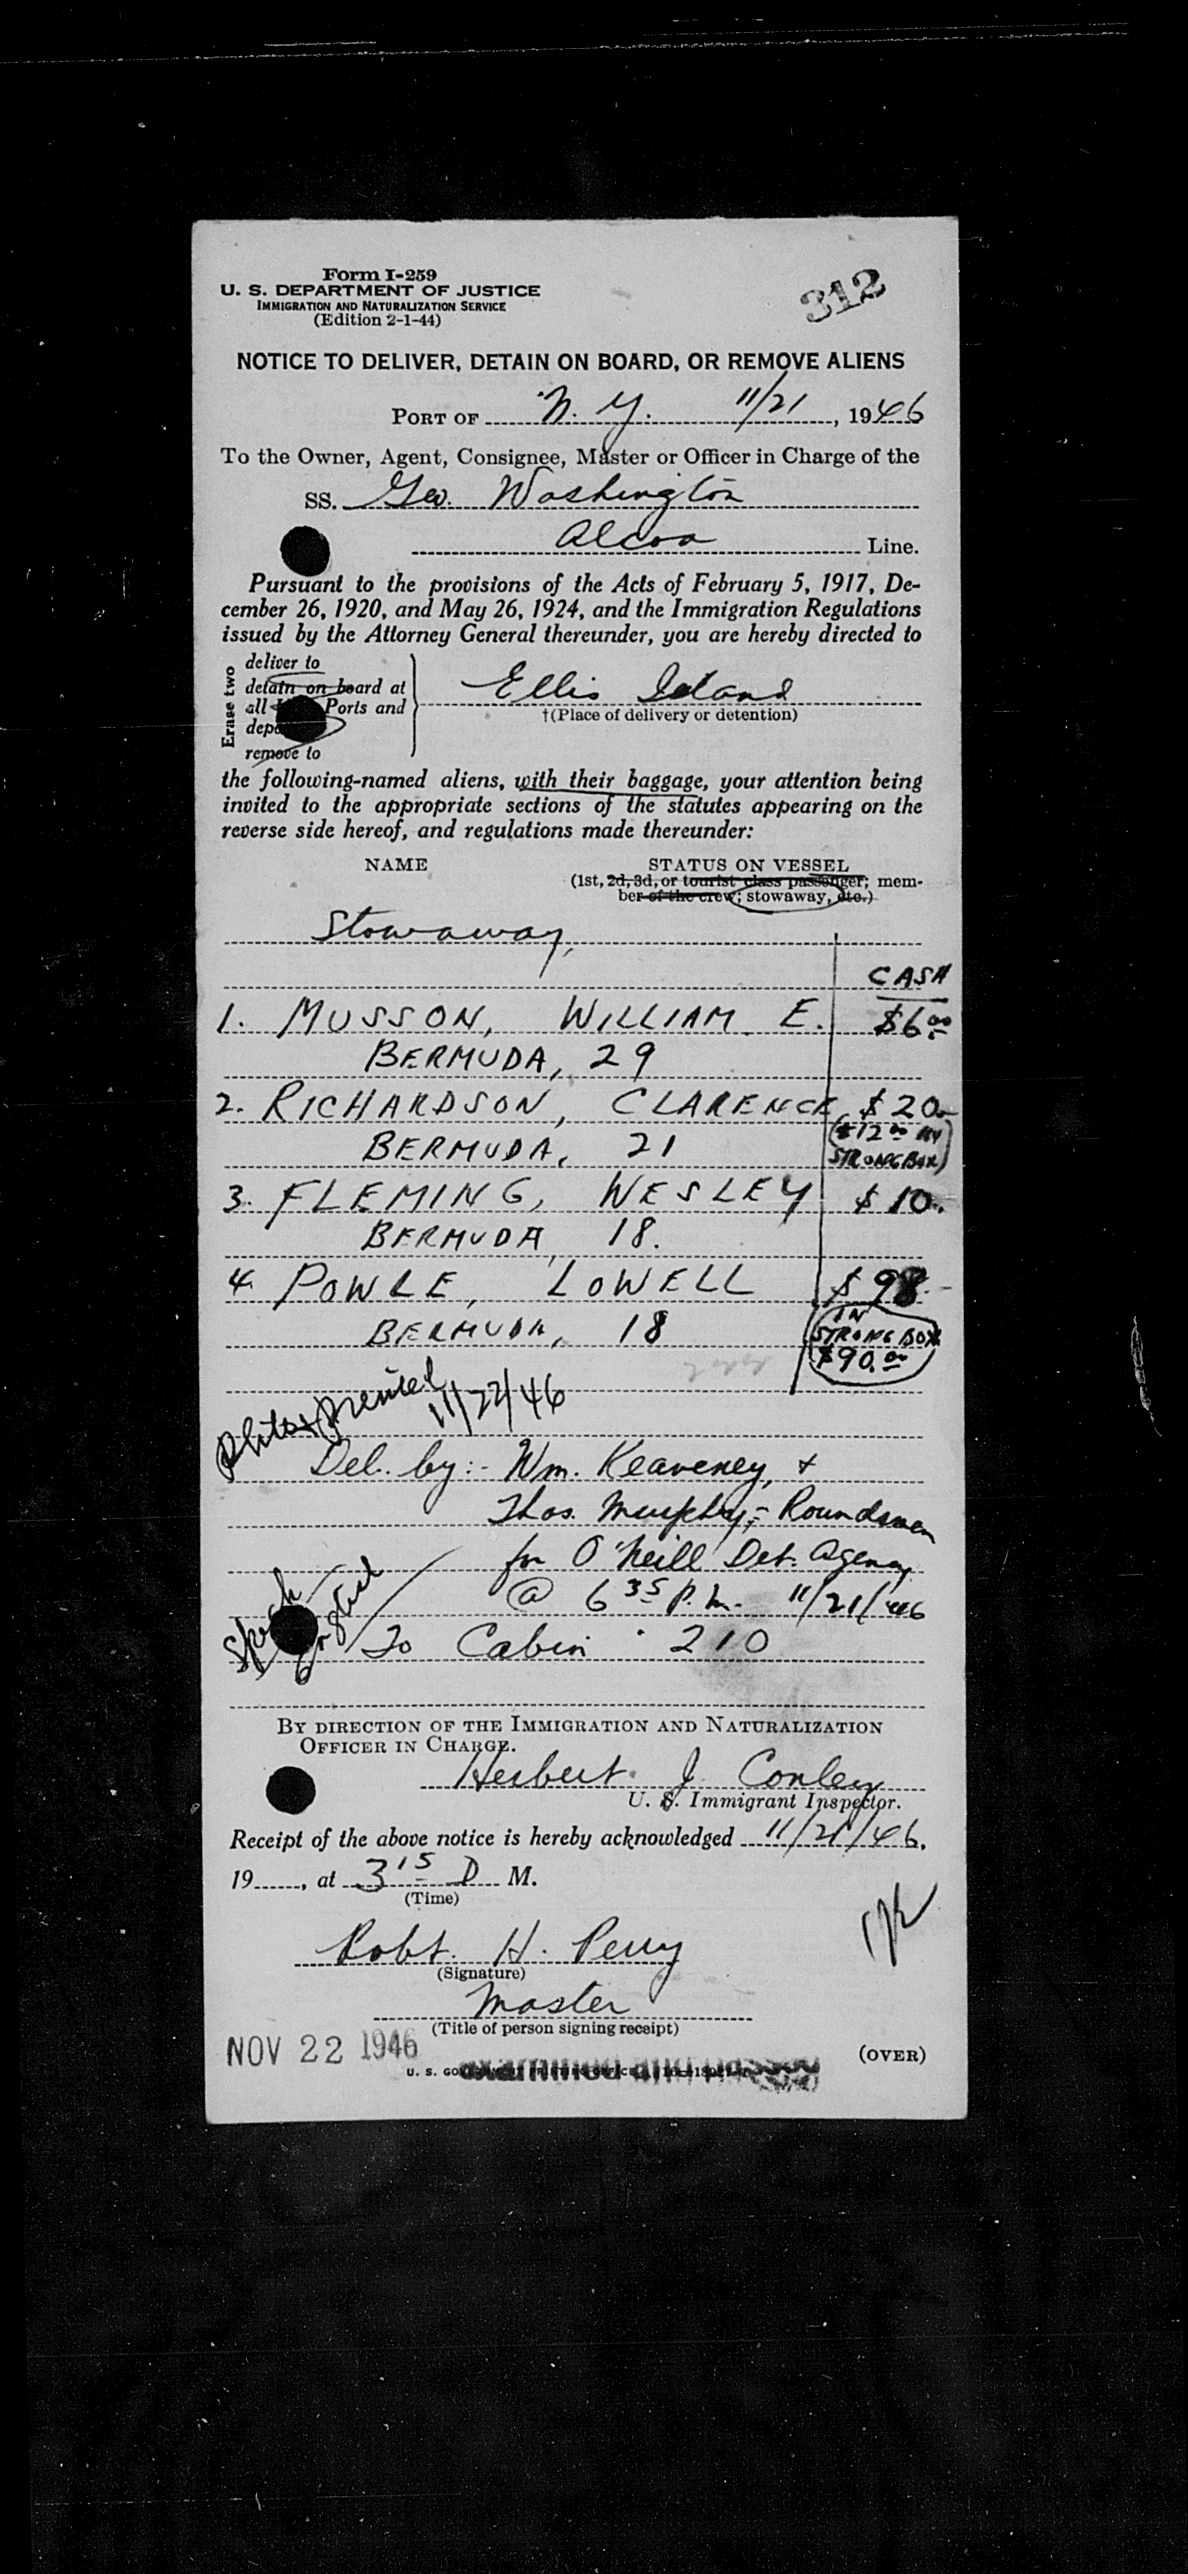 Form I-259
U. S. DEPARTMENT OF JUSTICE
IMMIGRATION AND NATURALIZATION SERVICE
(Edition 2-1-44)
312
NOTICE TO DELIVER, DETAIN ON BOARD, OR REMOVE ALIENS
PORT OF N. Y. 11/21, 1946
To the Owner, Agent, Consignee, Master or Officer in Charge of the
SS. Geo. Washington
Alcoa Line.
Pursuant to the provisions of the Acts of February 5, 1917, De-
cember 26, 1920, and May 26, 1924, and the Immigration Regulations
issued by the Attorney General thereunder, you are hereby directed to
Erase two
deliver to
detain on board at
all Ports and
remove to
Ellis Island
†(Place of delivery or detention)
the following-named aliens, with their baggage, your attention being
invited to the appropriate sections of the statutes appearing on the
reverse side hereof, and regulations made thereunder:
NAME STATUS ON VESSEL
(1st, 2d, 3d, or tourist class passenger; mem-
ber of the crew; stowaway, etc.)
Stowaway,
CASH
1. MUSSON, WILLIAM E. $6 00
BERMUDA, 29
2. RICHARDSON, CLARENCE $20
BERMUDA, 21 ($12 00 IN
STRONGBOX)
3. FLEMING, WESLEY $10.
BERMUDA, 18.
4 POWLE, LOWELL $98
BERMUDA, 18 IN
STRONG BOX
$90.00
11/22/46
Del. by:- Wm. Keaveney, +
Thos. Murphy,- Roundsmen
for O'Neill Det. Agency
@ 6 35 P.M. 11/21/46
To Cabin 210
BY DIRECTION OF THE IMMIGRATION AND NATURALIZATION
OFFICER IN CHARGE.
Herbert J. Conley
U. S. Immigrant Inspector.
Receipt of the above notice is hereby acknowledged 11/21/46,
19......, at 3 15 P M.
(Time)
Robt. H. Perry
(Signature)
Master
(Title of person signing receipt)
NOV 22 1946
(OVER)
examined and passed